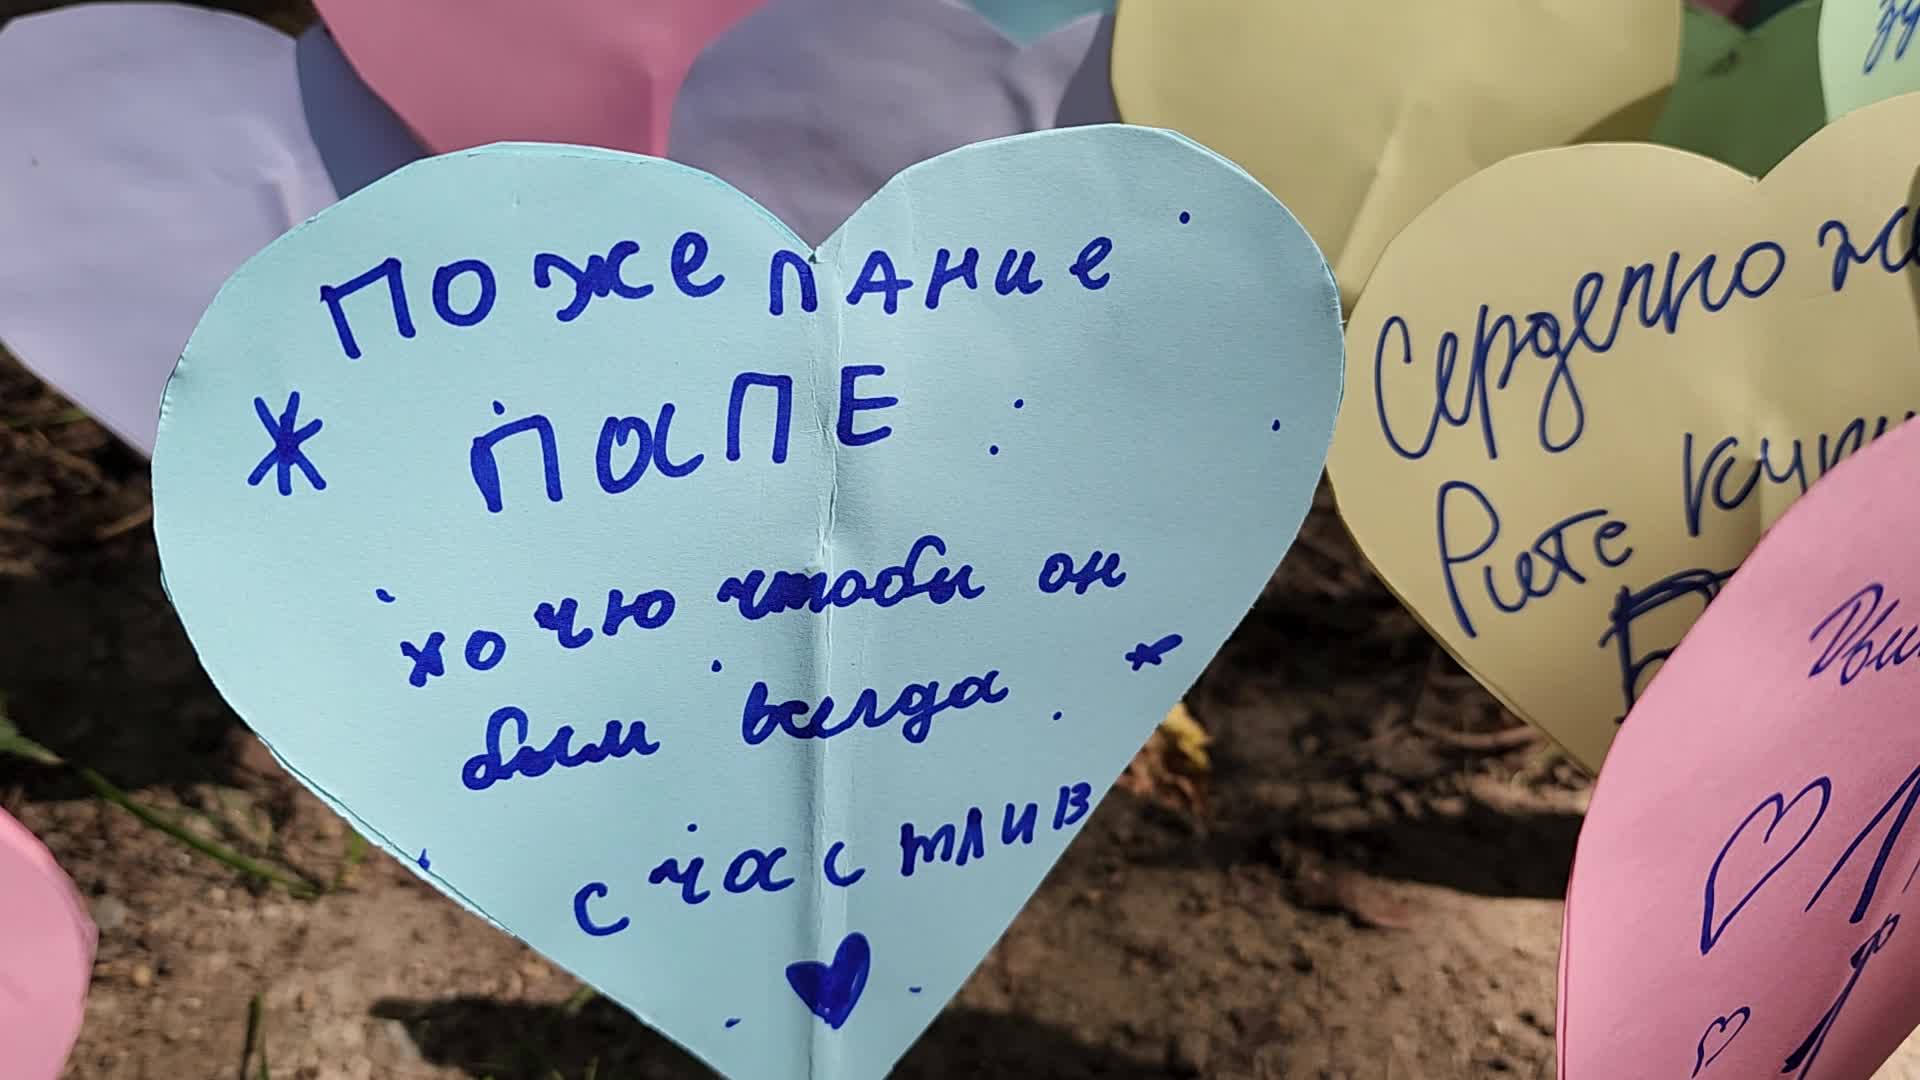 Пожелание
папЕ:
хочю чтобы он
был всегда
счастлив
Сердечно
Рите